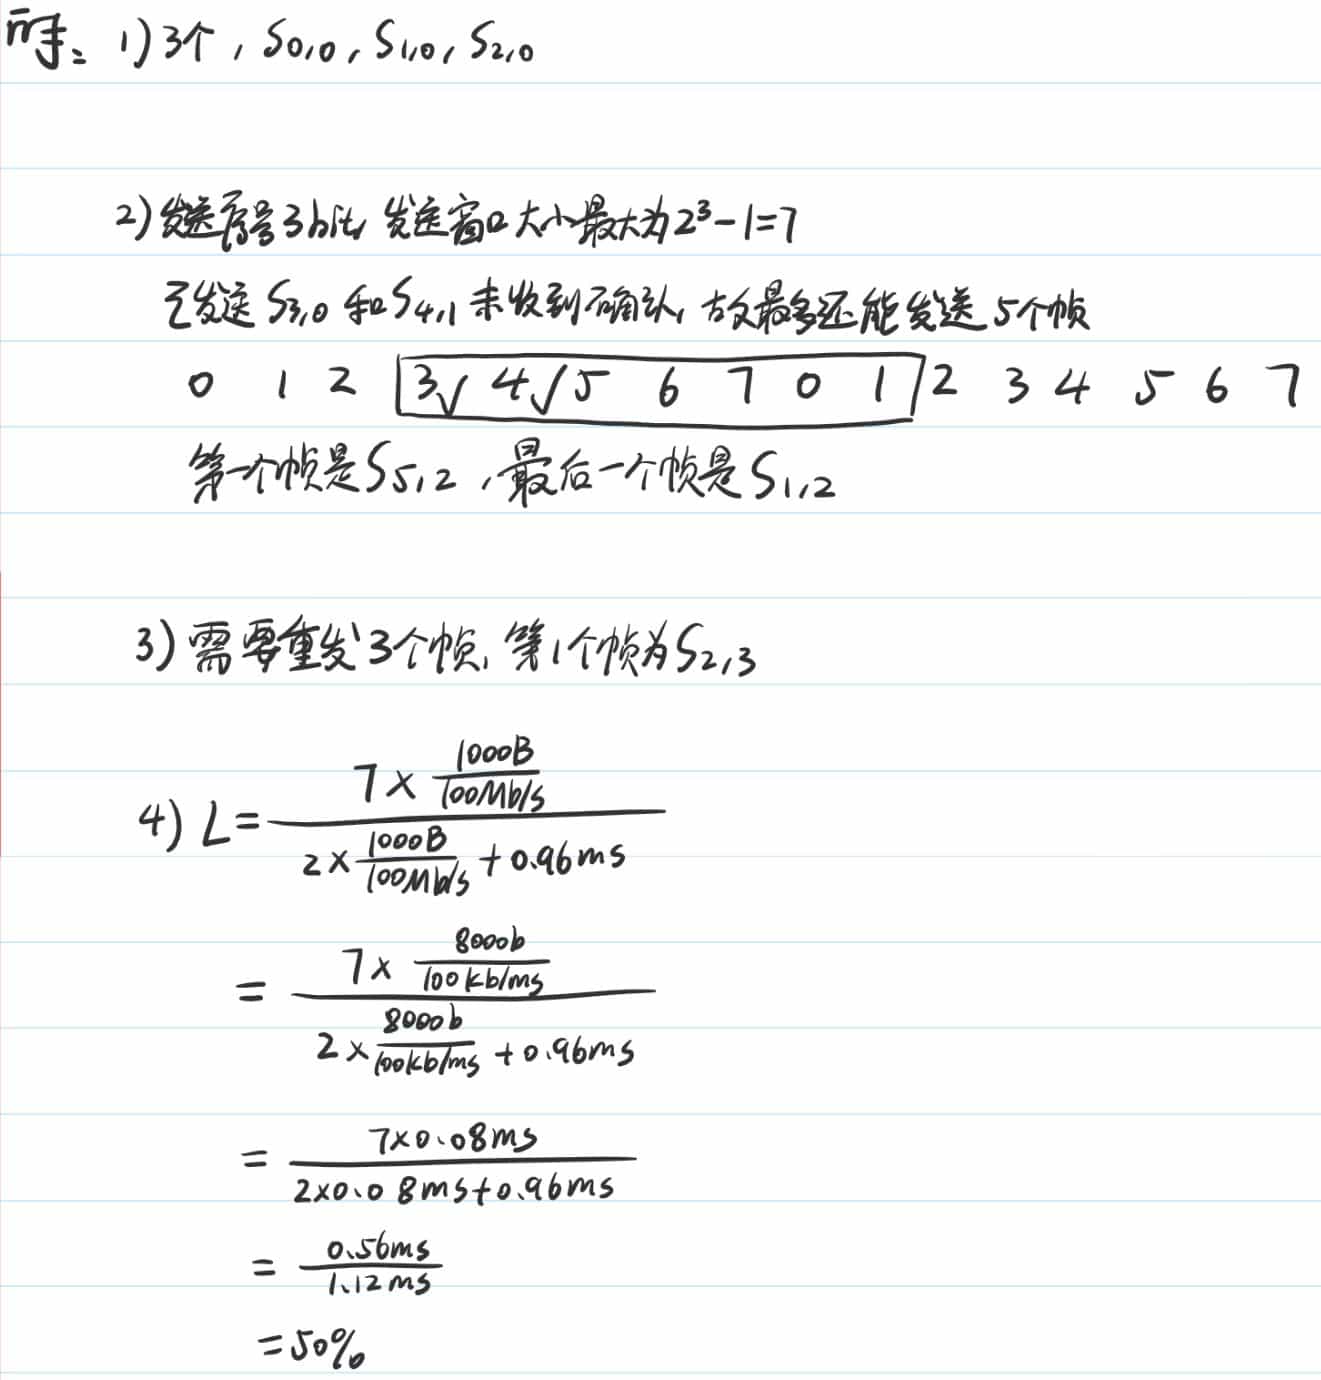 解: 1) 3个, S0,0, S1,0, S2,0
2) 发送序号3bit, 发送窗口大小最大为2³-1=7
已发送S3,0和S4,1未收到确认, 故最多还能发送5个帧
0 1 2 3√ 4√ 5 6 7 0 1 2 3 4 5 6 7
第一个帧是S5,2, 最后一个帧是S1,2
3) 需要重发3个帧, 第1个帧为S2,3
4) L = (7 × 1000B/100Mb/s) / (2 × 1000B/100Mb/s + 0.96ms)
= (7 × 8000b/100kb/ms) / (2 × 8000b/100kb/ms + 0.96ms)
= 7×0.08ms / 2×0.08ms+0.96ms
= 0.56ms / 1.12ms
=50%